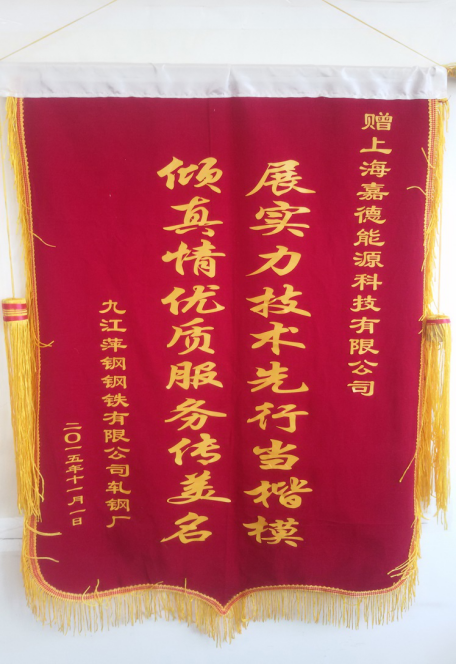 赠上海嘉德能源科技有限公司
展实力技术先行当楷模
倾真情优质服务传美名
九江萍钢钢铁有限公司轧钢厂
二〇一五年十一月一日